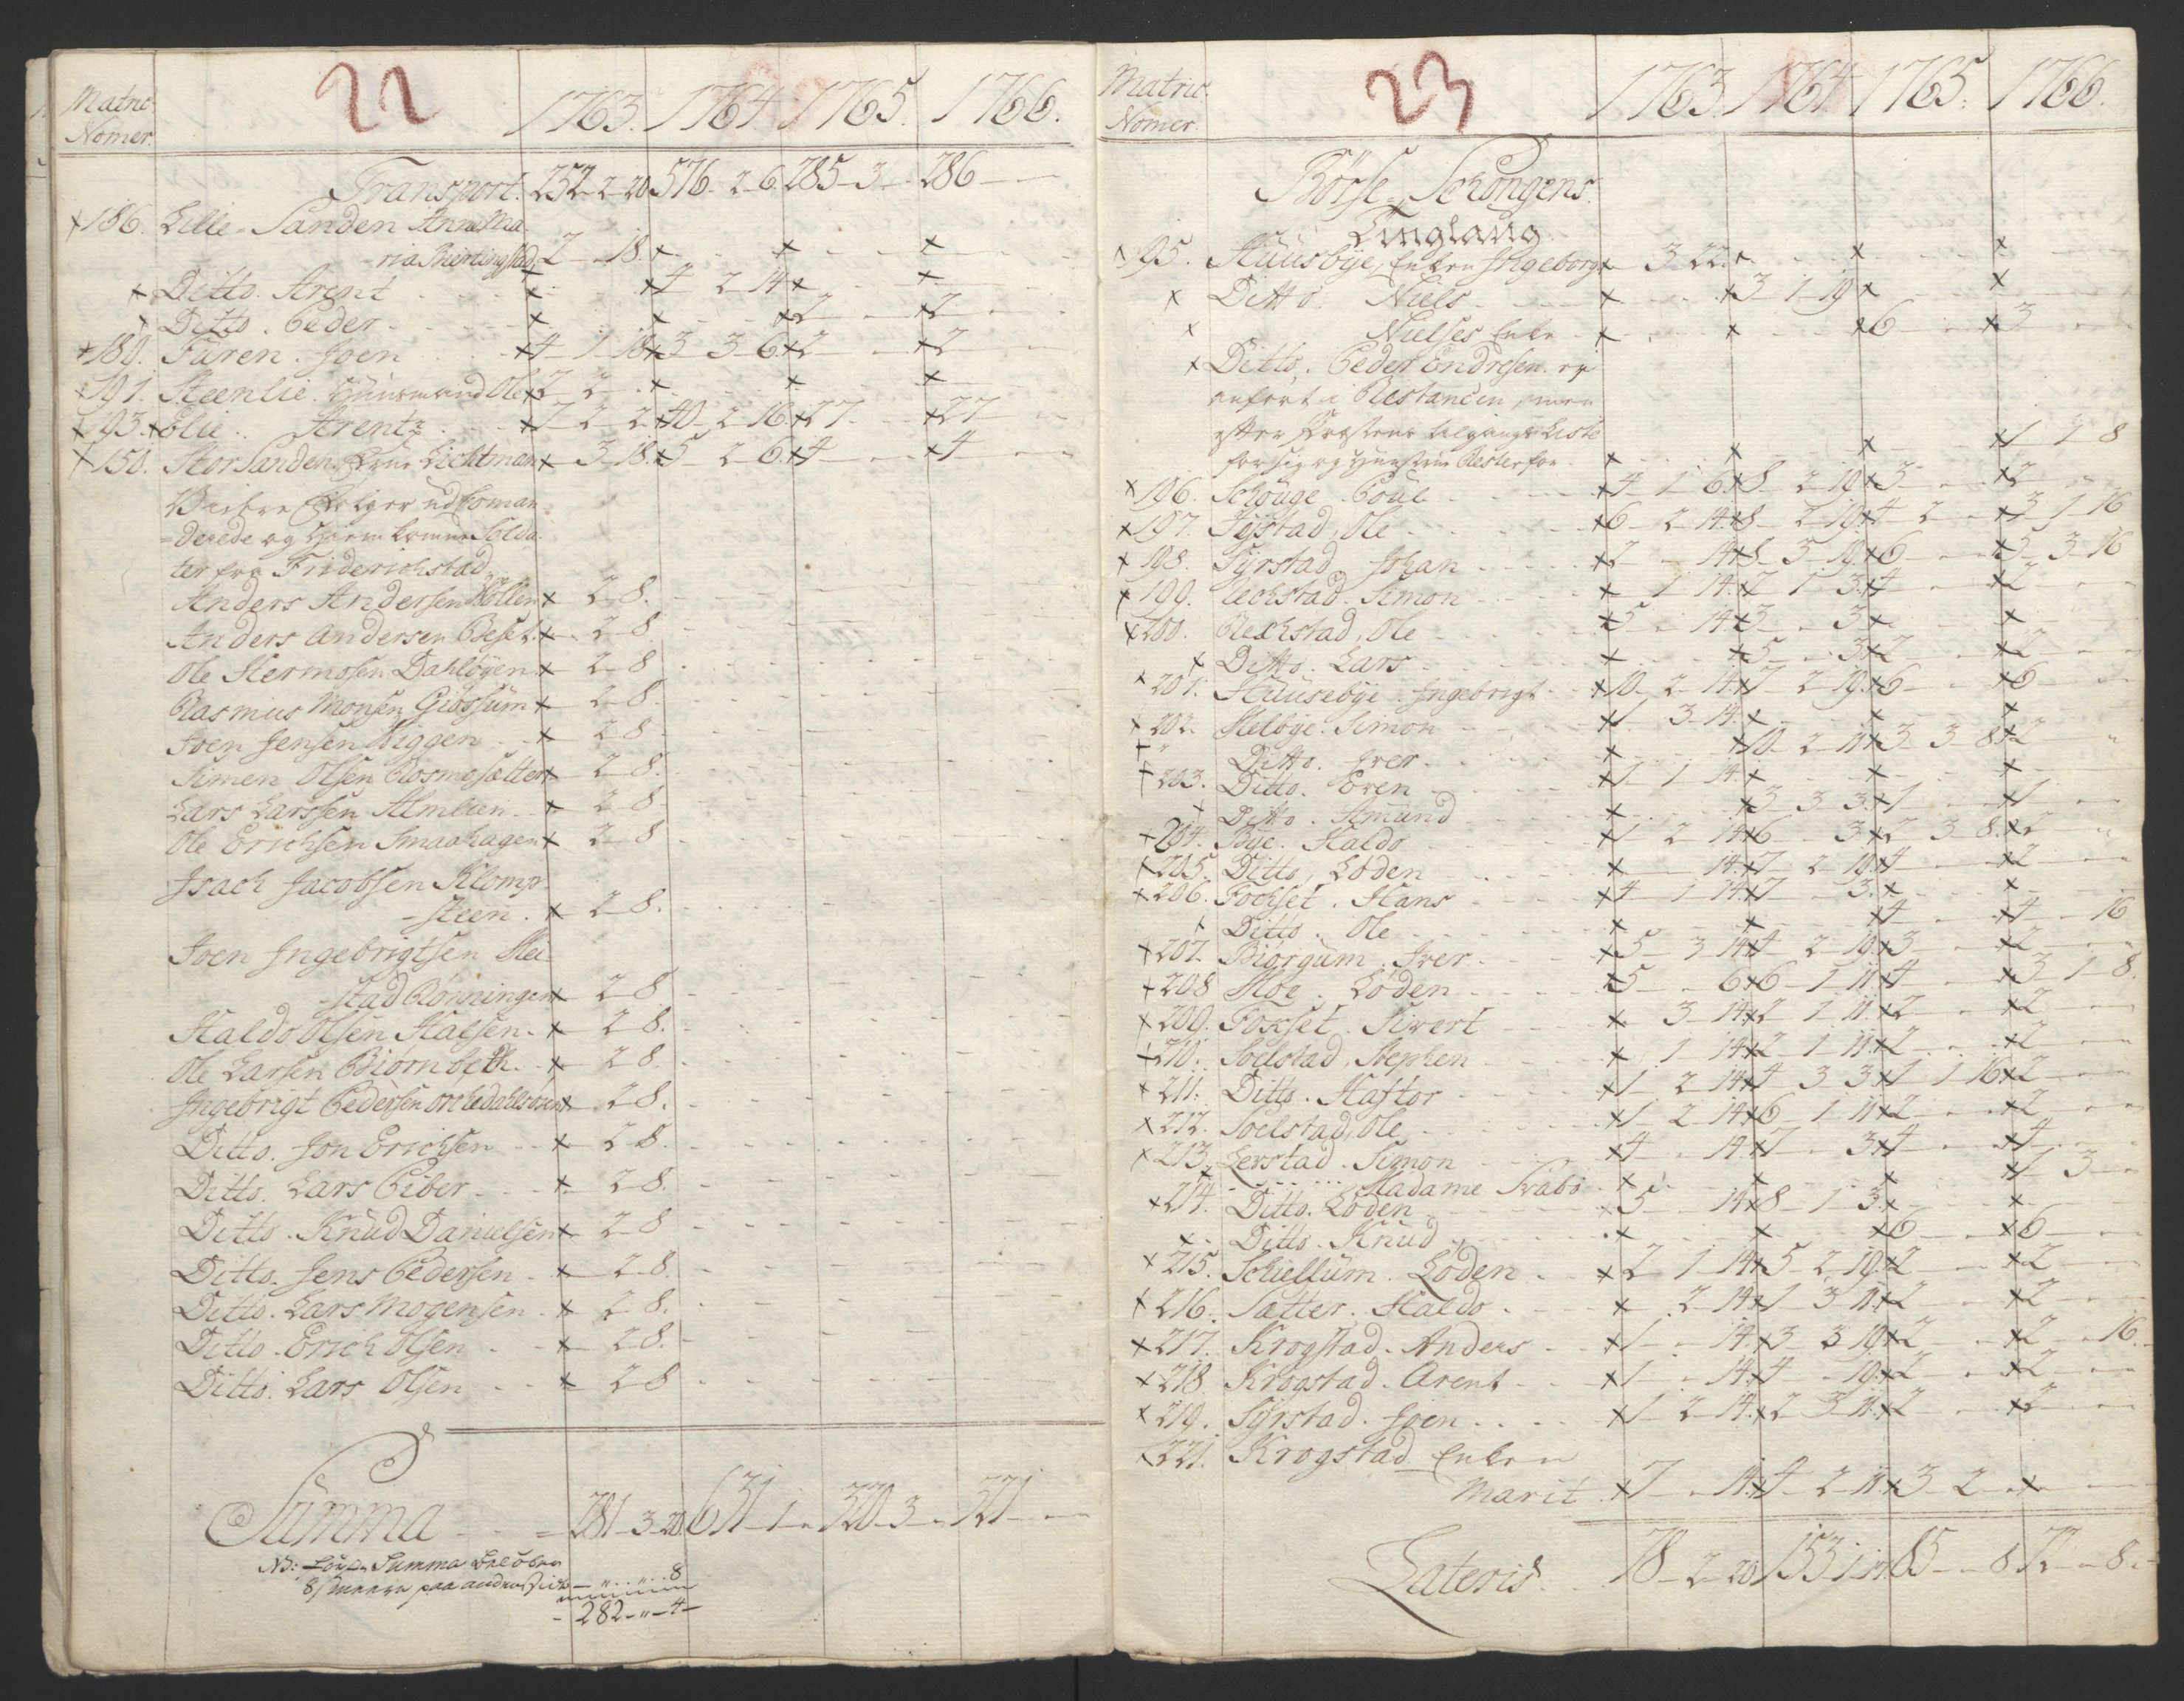 22
Matric
Nomer. 1763. 1764 1765. 1766.
Transport. 252-2-20 576-2-6. 285-3- 286-
×186. Lille-Sanden Anne Ma
ria 2 - 18. × × ×
× Ditto. Arent × ×4 2 14× ×
× Ditto. Peder × × ×2 ×2
×189. Furen. Joen ×4 1 18×3 3 6.×2 ×2
×191. Steenlie. Huusmand Ole ×2 2 × × ×
×193.× Elie. Arentz ×7 2 2×40 2 16.×27 ×27
×150. Stor Sanden. Lichtman× 3 18.×5 2 6.×4 ×4
udkoman
derede og Hiem komne Solda
ter fra Friderichstad
Anders Andersen Mollen × 2 8.
Anders Andersen × 2 8
Ole Hermosen Dahløyen × 2 8
Rasmus Monsen Giøssum × 2 8.
Joen Jensen Viggen × 2 8
Simen Olsen Rosmesætter × 2 8.
Lars Larssen Almlien × 2 8
Ole Erichsen Smaahagen × 2 8
Isach Jacobsen Klomp
steen. × 2 8.
Joen Ingebrigtsen Mei
stad Rønningen × 2 8
Haldo Olsen Halsen. × 2 8.
Ole Larsen Biørnbeth. × 2 8.
Ingebrigt Pedersen × 2 8.
Ditto. Jon Erichsen × 2 8.
Ditto. Lars Piber × 2 8.
Ditto. Knud Danielsen × 2 8
Ditto. Jens Pedersen × 2 8.
Ditto. Lars Mogensen × 2 8.
Ditto. Erich Olsen × 2 8.
Ditto. Lars Olsen × 2 8
Summa 281-3-20 631-1- 320-3- 321-
NB: Summa
8/ paa - " - " 8
- 282-"-4-
23
Matric.
Nomer. 1763. 1764 1765. 1766.
Børse-Schougens
Tinglaug
×195. Huusbye, Enken Ingeborg× 3 22.× × ×
× Ditto. Niels × ×3 1 19× ×
× Nielses Enke × × ×6 ×3
× Ditto. Peder Endresen. ey
anført i Restancen, men
efter Liste
for sig og × × × ×1 1 8
×196. Schouge. Poul ×4 1 6.×8 2 19×3 ×2
×197. Syrstad, Ole ×6 2 14.×8 2 19.×4 2 ×3 1 16
×198. Syrstad, Johan ×2 14×8 3 19.×6 ×5 3 16
×199. Rechstad. Simon × 1 14.×2 1 3.×4 ×2
×200. Rechstad, Ole ×5 14.×3 3× ×
× Ditto. Lars × ×5 3×2 ×2
×201. Huusebye. Ingebrigt ×10 2 14.×7 2 19.×6 ×6
×202. Melbye. Simon ×1 3 14.× × ×
×" Ditto. Iver × ×10 2 11×3 3 8.×2
×203. Ditto. Even ×1 1 14.× × ×
× Ditto. Amund × ×3 3 3.×1 ×1
×204. Bye. Haldo ×1 2 14×6 3×2 3 8.×2
×205. Ditto, Loden × 14.×7 2 19.×4 ×2
×206. Fochset. Hans ×4 1 14.×7 3.× ×
× Ditto. Ole × × ×4 ×4 16
×207. Biørgum. Iver ×5 3 14.×4 2 19.×3 ×2
×208 Moe. Loden ×5 6×6 1 11×4 ×3 1 8.
×209. Foxset. Sivert × 3 14×2 1 11.×2 ×2
×210. Soelstad, Stephen × 1 14×2 1 11.×2 ×2
×211. Ditto. Haftor ×1 2 14×4 3 3×1 1 16×2
×212. Soelstad, Ole ×1 2 14×6 1 11×2 ×2
×213. Lerstad. Simon ×4 14×7 3×4 ×4
× Madame × × × ×1 3
×214. Ditto. Loden ×5 14×8 1 3.× ×
×. Ditto. Knud × × ×6 ×6
×215. Schiellum. Loden ×2 1 14×5 2 19.×2 ×2
×216. Sætter. Haldo × 2 14×1 3 11.×2 ×2
×217. Krogstad. Anders ×1 14.×3 3 19×2 ×2 16
×218 Krogstad. Arent ×1 14.×4 19.×2 ×2
×219. Syrstad. Joen ×1 2 14.×2 3 11.×2 ×2
×221. Krogstad Enken
Marit ×7 14×4 2 11.×3 2 ×
Lateris. 78-2-20 153-1-19 85- -8 72- -8